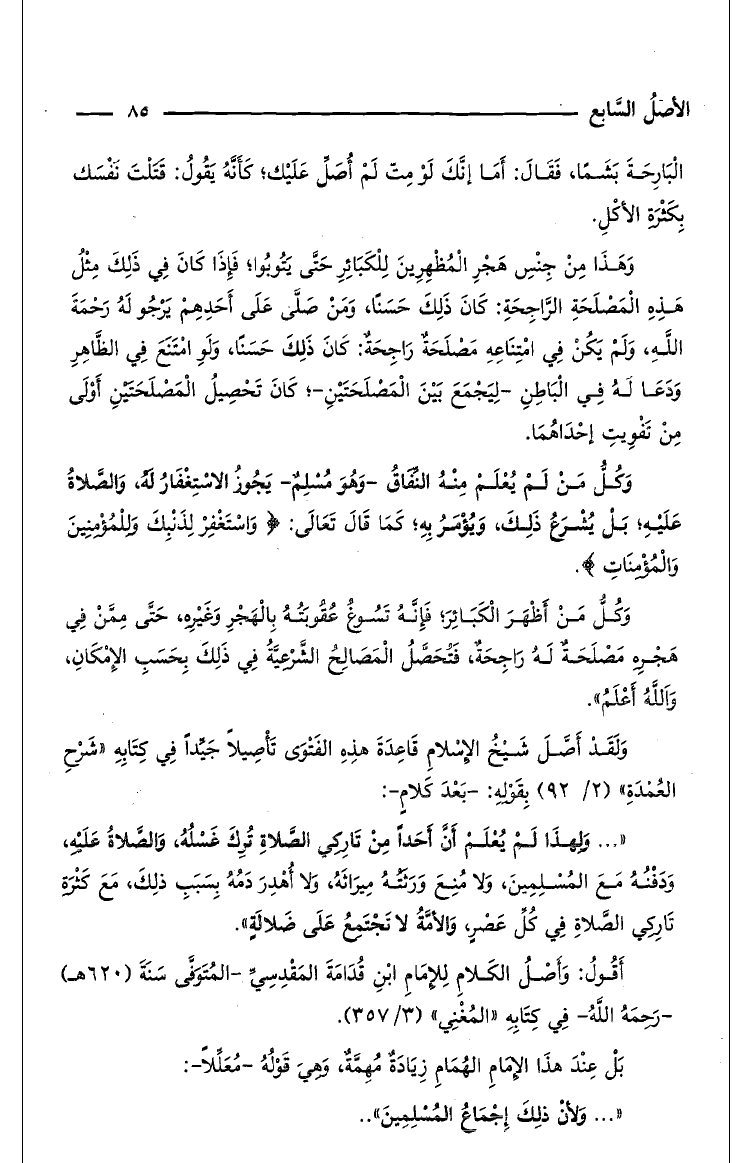 الأصلُ السَّابع ـــــــ ٨٥ ـــــــ
الْبَارِحَةَ بَشَمًا، فَقَالَ: أَمَا إنَّكَ لَوْ مِتّ لَمْ أُصَلِّ عَلَيْك؛ كَأَنَّهُ يَقُولُ: قَتَلْت نَفْسَك
بِكَثْرَةِ الأكْلِ.
وَهَذَا مِنْ جِنْسِ هَجْرِ الْمُظْهِرِينَ لِلْكَبَائِرِ حَتَّى يَتُوبُوا؛ فَإِذَا كَانَ فِي ذَلِكَ مِثْلُ
هَذِهِ الْمَصْلَحَةِ الرَّاجِحَةِ: كَانَ ذَلِكَ حَسَنًا، وَمَنْ صَلَّى عَلَى أَحَدِهِمْ يَرْجُو لَهُ رَحْمَةَ
اللَّهِ، وَلَمْ يَكُنْ فِي امْتِنَاعِهِ مَصْلَحَةٌ رَاجِحَةٌ: كَانَ ذَلِكَ حَسَنًا، وَلَوِ امْتَنَعَ فِي الظَّاهِرِ
وَدَعَا لَهُ فِي الْبَاطِنِ -لِيَجْمَعَ بَيْنَ الْمَصْلَحَتَيْنِ-؛ كَانَ تَحْصِيلُ الْمَصْلَحَتَيْنِ أَوْلَى
مِنْ تَفْوِيتِ إحْدَاهُمَا.
وَكُلُّ مَنْ لَمْ يُعْلَمْ مِنْهُ النِّفَاقُ -وَهُوَ مُسْلِمٌ- يَجُوزُ الاسْتِغْفَارُ لَهُ، وَالصَّلاةُ
عَلَيْهِ؛ بَلْ يُشْرَعُ ذَلِكَ، وَيُؤْمَرُ بِهِ؛ كَمَا قَالَ تَعَالَى: ﴿ وَاسْتَغْفِرْ لِذَنْبِكَ وَلِلْمُؤْمِنِينَ
وَالْمُؤْمِنَاتِ ﴾.
وَكُلُّ مَنْ أَظْهَرَ الْكَبَائِرَ؛ فَإِنَّهُ تَسُوغُ عُقُوبَتُهُ بِالْهَجْرِ وَغَيْرِهِ، حَتَّى مِمَّنْ فِي
هَجْرِهِ مَصْلَحَةٌ لَهُ رَاجِحَةٌ، فَتُحَصَّلُ الْمَصَالِحُ الشَّرْعِيَّةُ فِي ذَلِكَ بِحَسَبِ الإمْكَانِ،
وَاَللَّهُ أَعْلَمُ».
وَلَقَدْ أَصَّلَ شَيْخُ الإسْلامِ قَاعِدَةَ هذِهِ الفَتْوَى تَأْصِيلاً جَيِّداً فِي كِتَابِهِ «شَرْحِ
العُمْدَةِ» (٢/ ٩٢) بِقَوْلِهِ: -بَعْدَ كَلامٍ-:
«... وَلِهذَا لَمْ يُعْلَمْ أَنَّ أَحَداً مِنْ تَارِكِي الصَّلاةِ تُرِكَ غَسْلُهُ، وَالصَّلاةُ عَلَيْهِ،
وَدَفْنُهُ مَعَ المُسْلِمِينَ، وَلا مُنِعَ وَرَثَتُهُ مِيرَاثَهُ، وَلا أُهْدِرَ دَمُهُ بِسَبَبِ ذلِكَ، مَعَ كَثْرَةِ
تَارِكِي الصَّلاةِ فِي كُلِّ عَصْرٍ، وَالأمَّةُ لا تَجْتَمِعُ عَلَى ضَلالَةٍ».
أَقُولُ: وَأَصْلُ الكَلامِ لِلإمَامِ ابْنِ قُدَامَةَ المَقْدِسِيِّ -المُتَوَفَّى سَنَةَ (٦٢٠هـ)
-رَحِمَهُ اللَّهُ- فِي كِتَابِهِ «المُغْنِي» (٣/ ٣٥٧).
بَلْ عِنْدَ هذَا الإمَامِ الهُمَامِ زِيَادَةٌ مُهِمَّةٌ، وَهِيَ قَوْلُهُ -مُعَلِّلاً-:
«... وَلأنْ ذلِكَ إِجْمَاعُ المُسْلِمِينَ»..